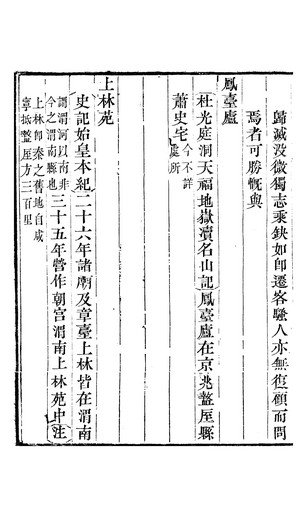 歸滅没微獨志乘缺如即遷客騷人亦無復顧而問
焉者可勝慨與
鳳臺廬
杜光庭洞天福地嶽瀆名山記鳳臺廬在京兆盩厔縣
蕭史宅今不詳
處所
上林苑
史記始皇本紀二十六年諸廟及章臺上林皆在渭南
謂渭河以南非
今之渭南縣也三十五年營作朝宮渭南上林苑中注
上林即秦之舊地自咸
寧抵盩厔方三百里